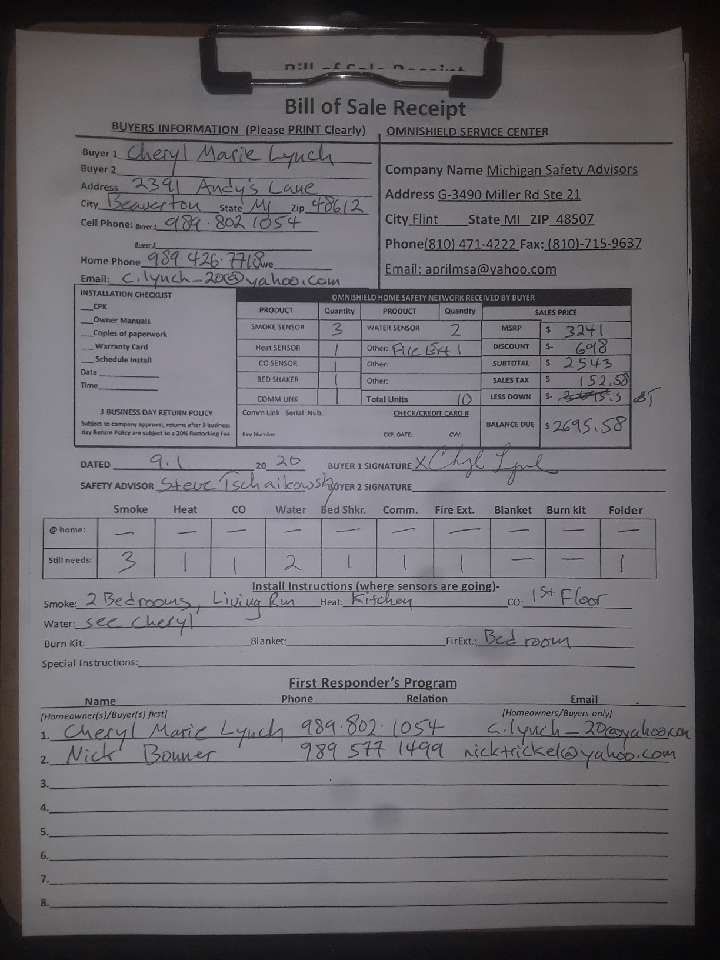 Bill of Sale Receipt
Bill of Sale Receipt
BUYERS INFORMATION (Please PRINT Clearly)
Buyer 1 Cheryl Marie Lynch
Buyer 2
Address 2391 Andy's Lane
City Beaverton State MI Zip 48612
Cell Phone: Buyer 1 989.802 1054
Buyer 2
Home Phone 989 426.7718
Email: c.lynch_20@yahoo.com
OMNISHIELD SERVICE CENTER
Company Name Michigan Safety Advisors
Address G-3490 Miller Rd Ste 21
City Flint State MI ZIP 48507
Phone(810) 471-4222 Fax: (810)-715-9637
Email: aprilmsa@yahoo.com
INSTALLATION CHECKLIST
EPK
Owner Manuals
Copies of paperwork
Warranty Card
Schedule Install
Date
Time
3 BUSINESS DAY RETURN POLICY
Subject to company approval, returns after 3 business
day Return Policy are subject to a 20% Restocking Fee
OMNISHIELD HOME SAFETY NETWORK RECEIVED BY BUYER
PRODUCT Quantity PRODUCT Quantity SALES PRICE
SMOKE SENSOR 3 WATER SENSOR 2 MSRP $ 3241
Heat SENSOR 1 Other: Fire Ext 1 DISCOUNT $- 698
CO SENSOR 1 Other: SUBTOTAL $ 2543
BED SHAKER 1 Other: SALES TAX $ 152.58
COMM LINK 1 Total Units 10 LESS DOWN $-
Comm Link Serial Nub. CHECK/CREDIT CARD # BALANCE DUE $2695.58
Key Number EXP. DATE: CVV:
DATED 9.1 20 20 BUYER 1 SIGNATURE X Chyl Lynch
SAFETY ADVISOR Steve Tschaikowsky BUYER 2 SIGNATURE
Smoke Heat CO Water Bed Shkr. Comm. Fire Ext. Blanket Burn kit Folder
@ home: — — — — — — — — — —
Still needs: 3 1 1 2 1 1 1 — — 1
Install Instructions (where sensors are going)-
Smoke: 2 Bedrooms, Living Rm Heat: Kitchen CO: 1st Floor
Water: see Cheryl
Burn Kit: Blanket: FirExt.: Bedroom
Special Instructions:
First Responder's Program
Name Phone Relation Email
(Homeowner(s)/Buyer(s) first) (Homeowners/Buyers only)
1. Cheryl Marie Lynch 989.802.1054 c.lynch_20@yahoo.com
2. Nick Bonner 989 577 1499 nicktrickel@yahoo.com
3.
4.
5.
6.
7.
8.